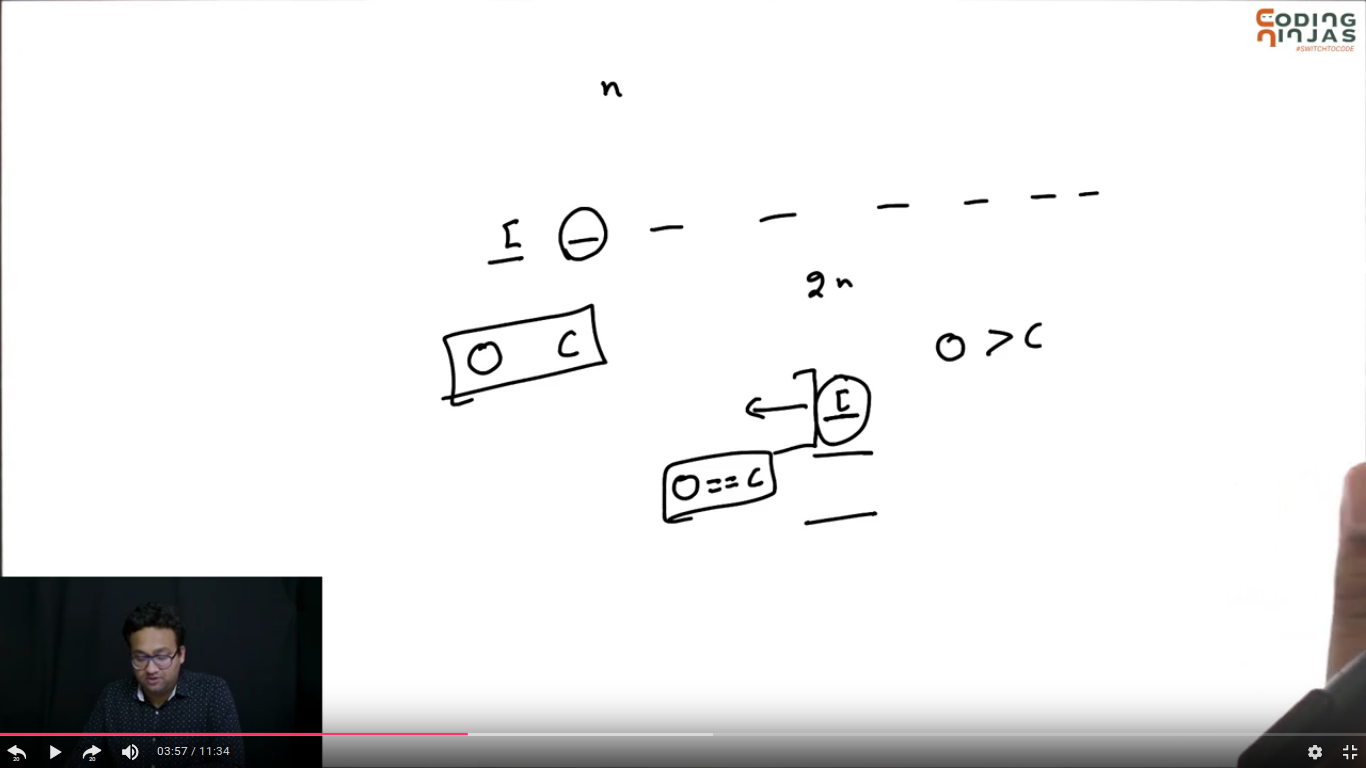 CODING
NINJAS
#SWITCHTOCODE
n
[
2n
O C
O > C
[
O == C
20
20
03:57 / 11:34